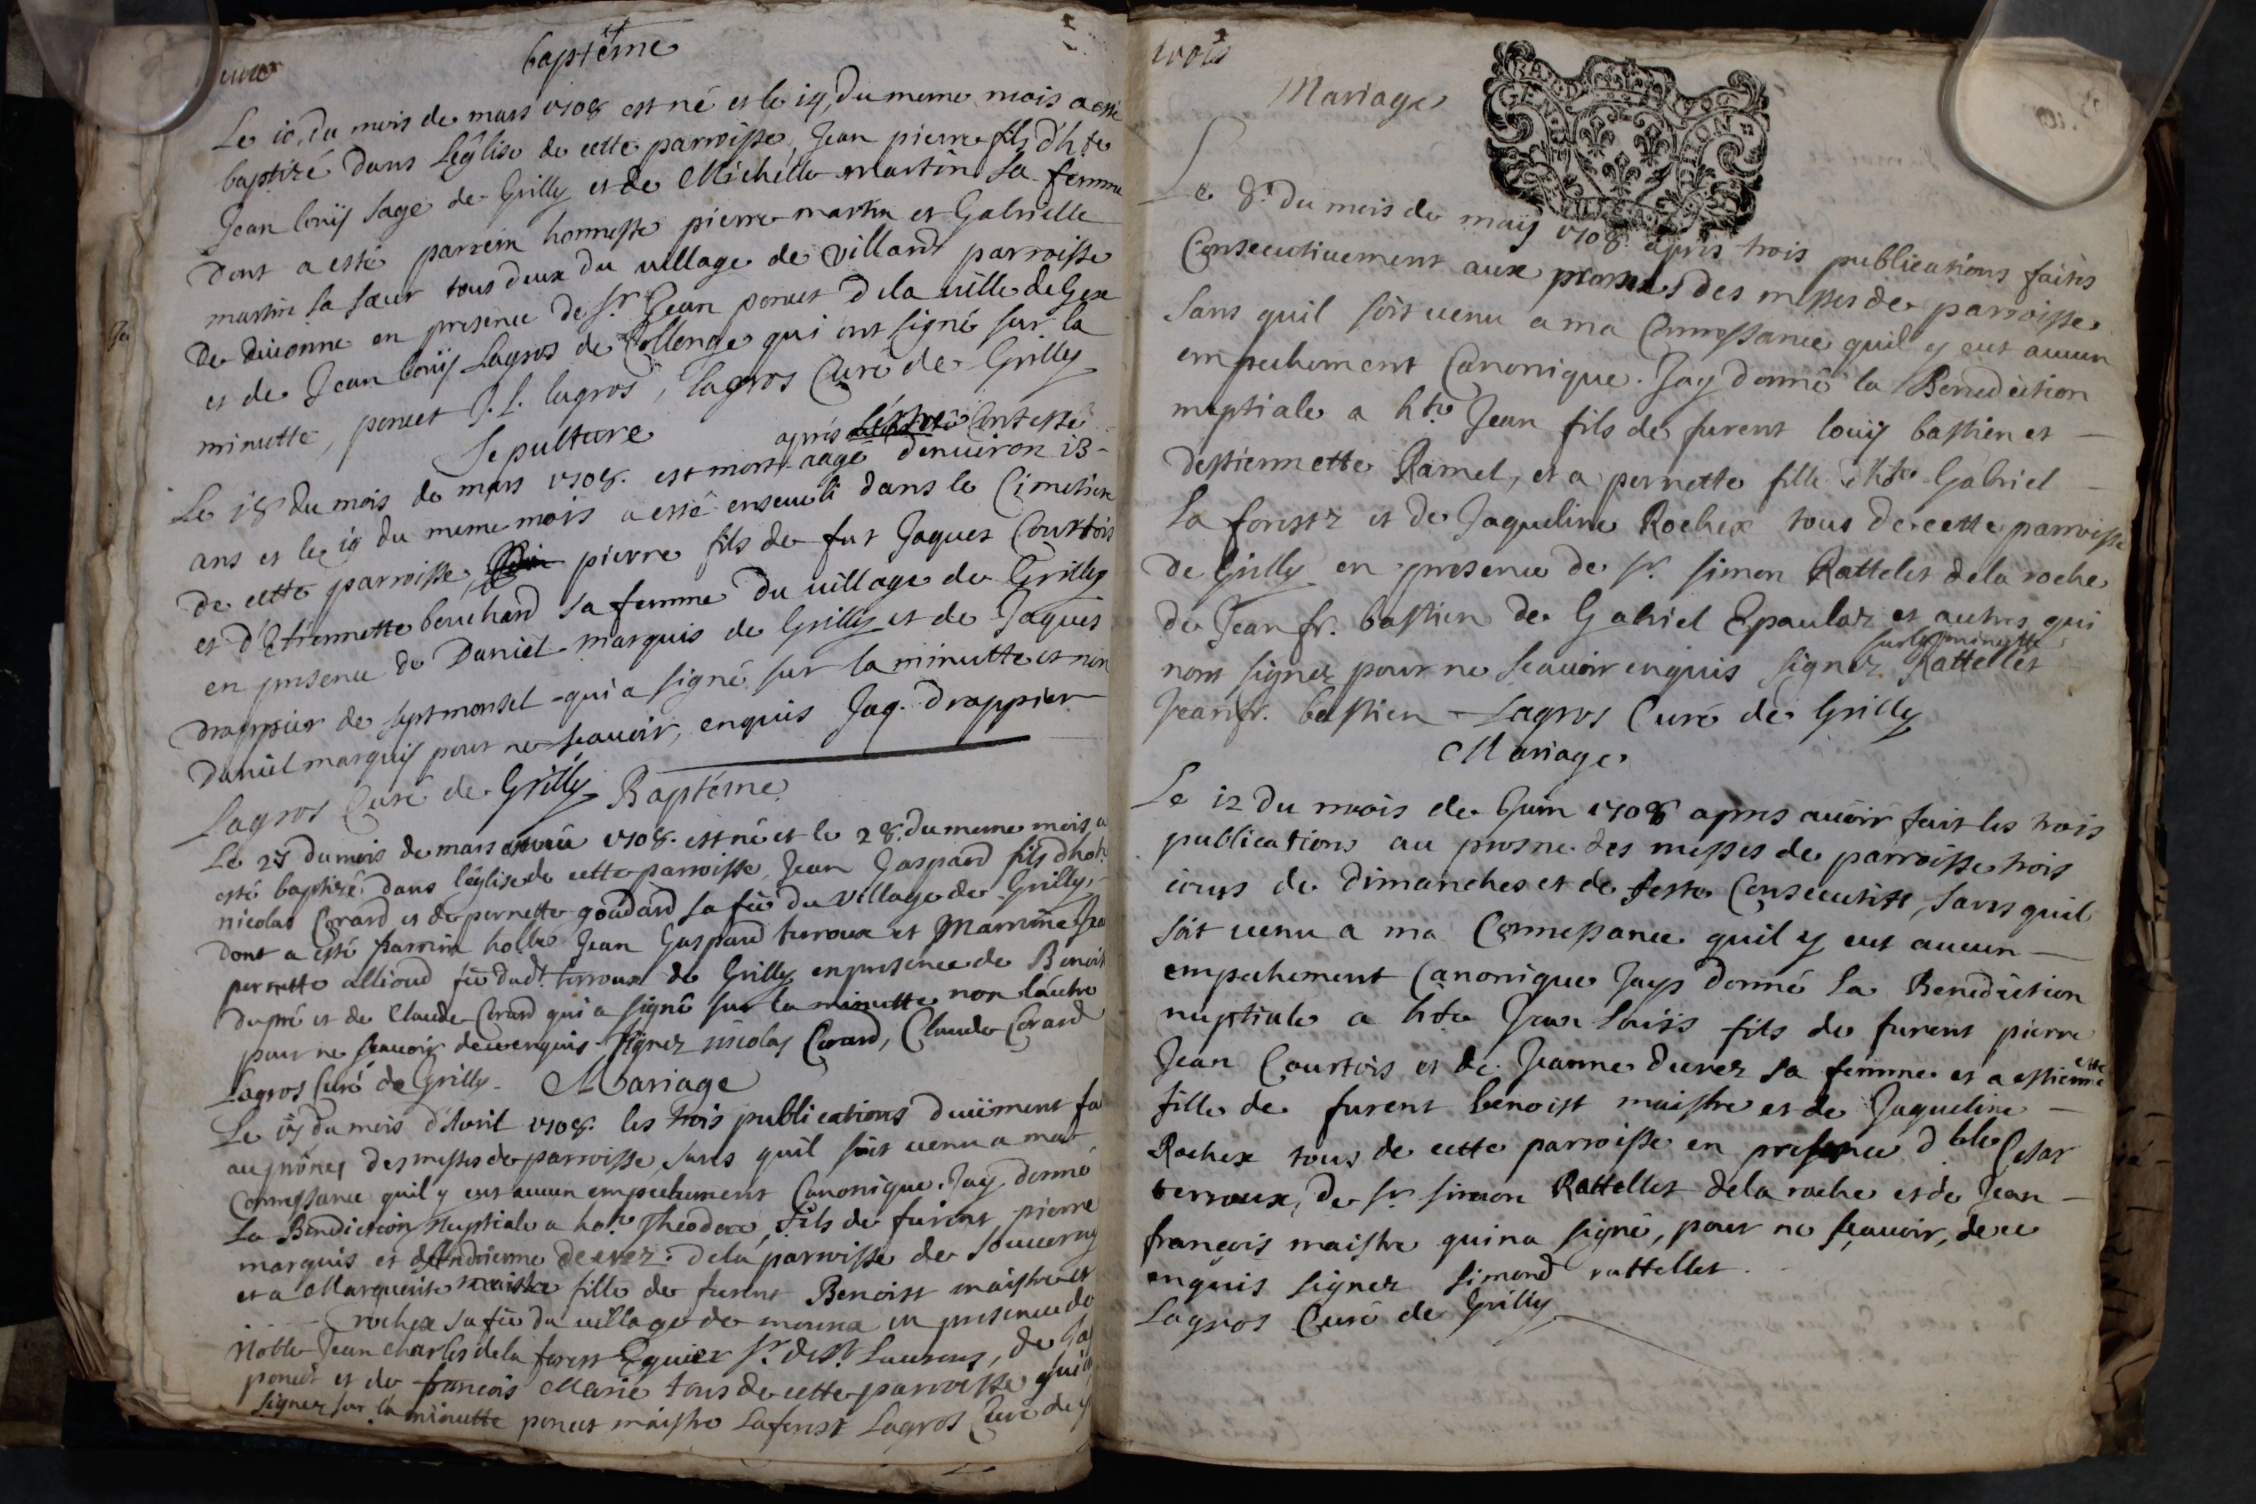 baptême
Le 10, du mois de mars 1708 est né et le 14, du meme mois a esté
baptizé dans l'église de cette parroisse, Jean pierre fils d'h.te
Jean louys sage de Grilly et de Michelle martin sa femme
dont a esté parrein honneste pierre martin et Gabrielle
martin sa sœur tous deux du village de Villard parroisse
de diuonne en presence de sr Jean ponçet de la uille de Gex
et de Jean louys Lagros de Collenge qui ont signé sur la
minutte, ponçet J. L. lagros, Lagros Curé de Grilly
Sepulture
après Confessé
Le 18 du mois de mars 1708. est mort aagé denuiron 13
ans et le 19 du meme mois a esté enseueli dans le Cimetiere
de cette parroisse, pierre fils de fut Jaques Courtois
et d'Etiennette bouchard sa femme du uillage de Grilly
en presence de Daniel marquis de Grilly et de Jaques
drappier de septmonsel qui a signé sur la minutte et non
daniel marquis pour ne scauoir, enquis Jaq. Drappier
Lagros Curé de Grilly Baptéme
Le 27 du mois de mars 1708. est né et le 28. du meme mois a
esté baptizé dans l'église de cette parroisse Jean Gaspard fils d'hon.
nicolas Corard et de pernette goudard sa fe du village de Grilly,
dont a esté parrein Jean Gaspard terroux et Marreine
pernette allioud fe dud.t terroux de Grilly en presence de Benoit
dupré et de Claude Corard qui a signé sur la minutte non l'autre
pour ne scauoir de ce enquis signez nicolas Corard, Claude Corard
Lagros Curé de Grilly Mariage
Le 17 du mois d'Avril 1708. les trois publications duiiment
au prônes des messes de parroisse sans quil soit uenu a ma
Connessance quil y eut aucun empechement Canonique. Jay donné
La Benediction Nuptiale a Theodore, fils de furent pierre
marquis et d'Andrienne deurez dela parroisse de Souuerny
et a Marguerite maistre fille de furent Benoist maistre et
rochex sa fe du uillage de mourex en presence de
Noble Jean charles de la forest Equier sr de st Laurens, de
ponçet et de francois Marie tous de cette parroisse
signez sur la minutte ponçet maistre Laforest Lagros Curé de
trois
Mariage
GEN DVCHE
Le 8. du mois de may 1708. apres trois publications faites
Consecutiuement aux prones des messes de parroisse
sans quil soit uenu a ma Connessance quil y eut aucun
empechement Canonique. Jay donné la Benediction
nuptiale a h.te Jean fils de furent louys bastien et
destiennette Ramel, et a pernette fille d'h.te Gabriel
La forestz et de Jaqueline Rochex tous de cette parroisse
de Grilly en presence de sr. simon Rattelet dela roche
de Jean fr. bastien de Gabriel Epaulaz et autres qui
sur la minutte
nont signez pour ne scauoir enquis signez Rattellet
Jean fr. bastien Lagros Curé de Grilly
Mariage
Le 12 du mois de Juin 1708 apres auoir fait les trois
publications au prosne des messes de parroisse trois
iours de dimanches et de feste Consecutifs, sans quil
soit uenu a ma Connessance quil y eut aucun
empechement Canonique Jays donné la Benediction
nuptiale a h.te Jean Louis fils de furent pierre
Jean Courtois et de Jeanne deurez sa femme et a estiennette
fille de furent benoist maistre et de Jaqueline
Rochex tous de cette parroisse en presence d Cesar
terroux, de sr. simon Rattellet dela roche et de Jean
françois maistre qui na signé, pour ne sçauoir, de ce
enquis signez Simond rattellet
Lagros Curé de Grilly